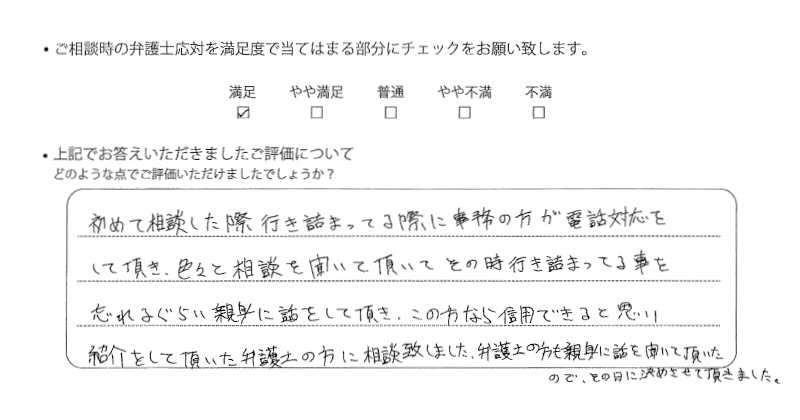 ・ご相談時の弁護士応対を満足度で当てはまる部分にチェックをお願い致します。
満足 やや満足 普通 やや不満 不満
☑ □ □ □ □
・上記でお答えいただきましたご評価について
どのような点でご評価いただけましたでしょうか？
初めて相談した際行き詰まってる際に事務の方が電話対応を
して頂き、色々と相談を聞いて頂いてその時行き詰まってる事を
忘れるぐらい親身に話をして頂き、この方なら信用できると思い
紹介をして頂いた弁護士の方に相談致しました、弁護士の方も親身に話を聞いて頂いた
ので、その日に決めさせて頂きました。